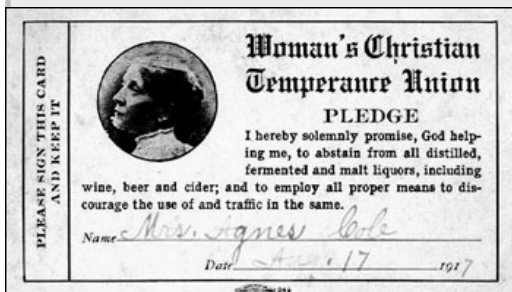 PLEASE SIGN THIS CARD
AND KEEP IT
Woman's Christian
Temperance Union
PLEDGE
I hereby solemnly promise, God help-
ing me, to abstain from all distilled,
fermented and malt liquors, including
wine, beer and cider; and to employ all proper means to dis-
courage the use of and traffic in the same.
Name Mrs. Agnes Cole
Date Aug. 17 1917